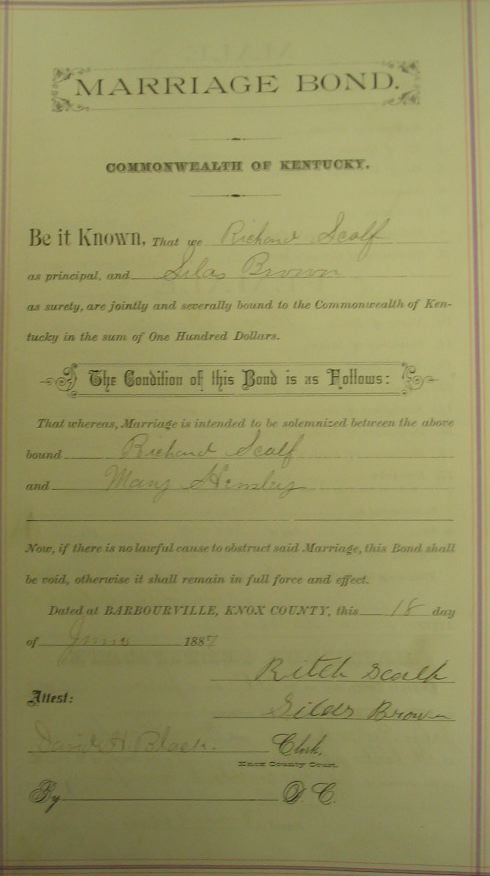 MARRIAGE BOND.
COMMONWEALTH OF KENTUCKY.
Be it Known, That we Richard Scalf
as principal, and Silas Brown
as surety, are jointly and severally bound to the Commonwealth of Ken-
tucky in the sum of One Hundred Dollars.
The Condition of this Bond is as Follows:
That whereas, Marriage is intended to be solemnized between the above
bound Richard Scalf
and Mary Hensley
Now, if there is no lawful cause to obstruct said Marriage, this Bond shall
be void, otherwise it shall remain in full force and effect.
Dated at BARBOURVILLE, KNOX COUNTY, this 18 day
of June 1887
Ritch Scalf
Attest:
Silas Brown
David H Black. Clerk,
Knox County Court.
By D. C.